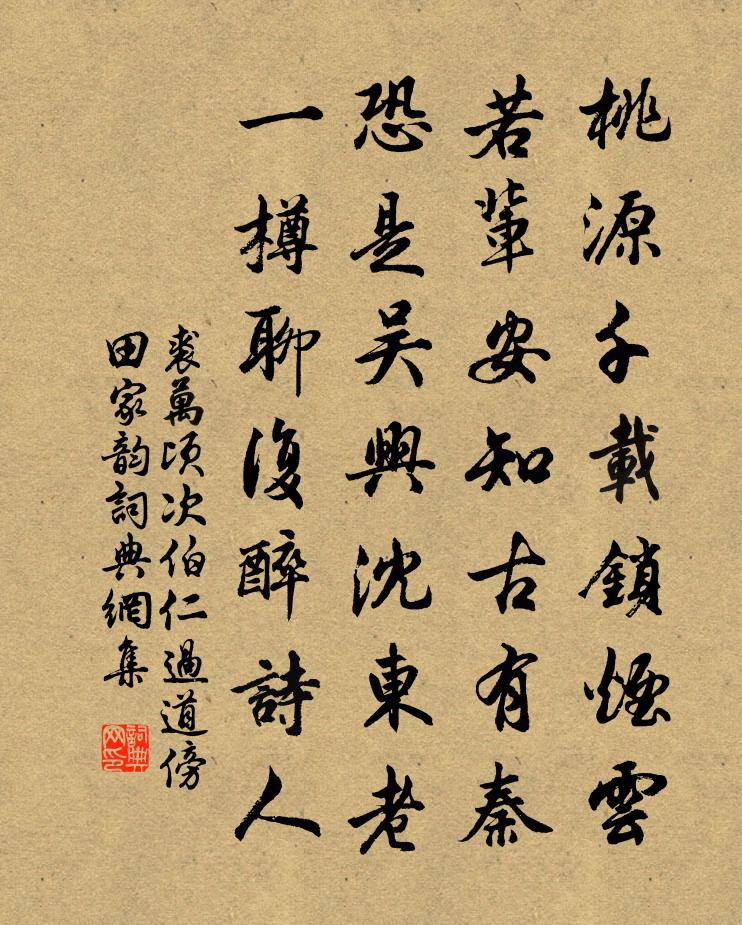 桃源千載鎖煙雲
若輩安知古有秦
恐是吴興沈東老
一樽聊復醉詩人
裘萬頃次伯仁過道傍
田家韵詞典網集
詞典网印